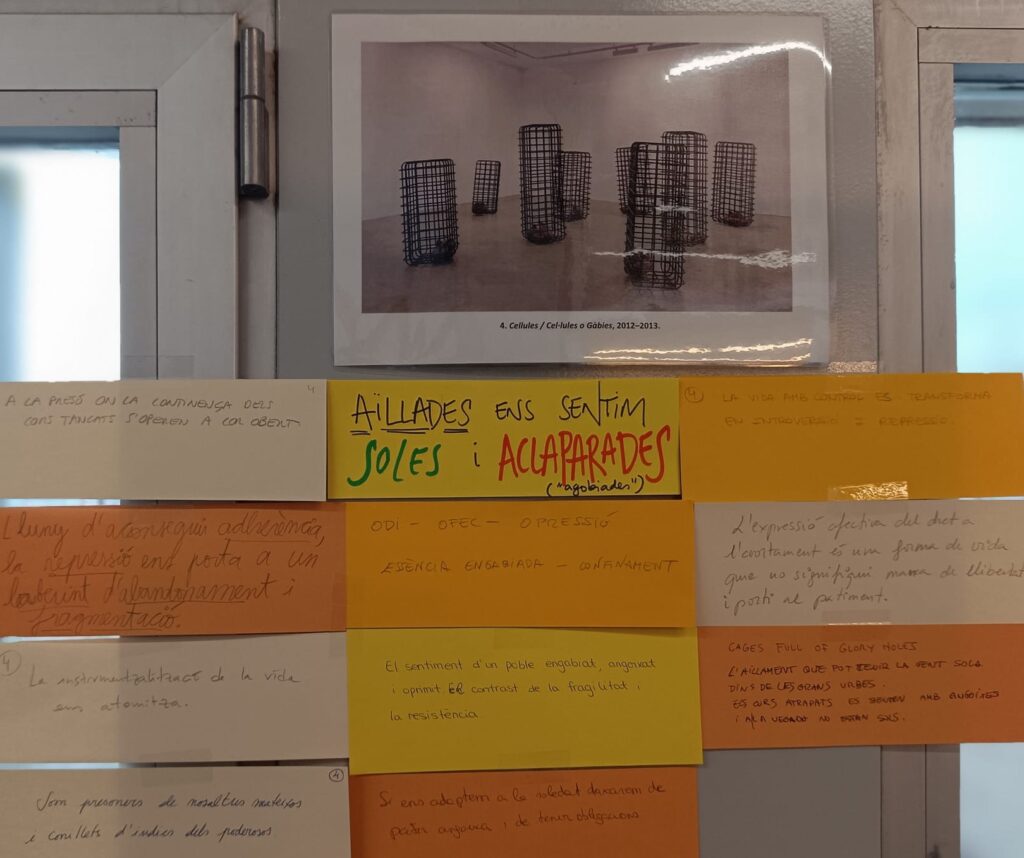 4. Cel·lules / Cel·lules o Gàbies, 2012–2013.
4
A LA PRESÓ ON LA CONTINENÇA DELS
CORS TANCATS S'OPEREN A COR OBERT
AÏLLADES ENS SENTIM
SOLES i ACLAPARADES
("agobiades")
4
LA VIDA AMB CONTROL ES TRANSFORMA
EN INTROVERSIÓ I REPRESSIÓ.
Lluny d'aconseguir adherència,
la repressió ens porta a un
laberint d'abandonament i
fragmentació.
ODI - OFEC - OPRESSIÓ
ESÈNCIA ENGABIADA - CONFINAMENT
L'expressió efectiva del dret a
l'avortament és una forma de vida
que no signifiqui manca de llibertat
i porti al patiment.
4
La instrumentalització de la vida
ens atomitza.
El sentiment d'un poble engabiat, angoixat
i oprimit. El contrast de la fragilitat i
la resistència.
CAGES FULL OF GLORY HOLES
L'AÏLLAMENT QUE POT TENIR LA GENT SOLA
DINS DE LES GRANS URBES.
ELS CORS ATRAPATS ES SENTEN AMB ANGOIXES
I A LA VEGADA NO ESTAN SOLS.
4
Som presoners de nosaltres mateixos
i conillets d'índies dels poderosos.
Si ens adaptem a la soledat deixarem de
patir angoixa i de tenir obligacions